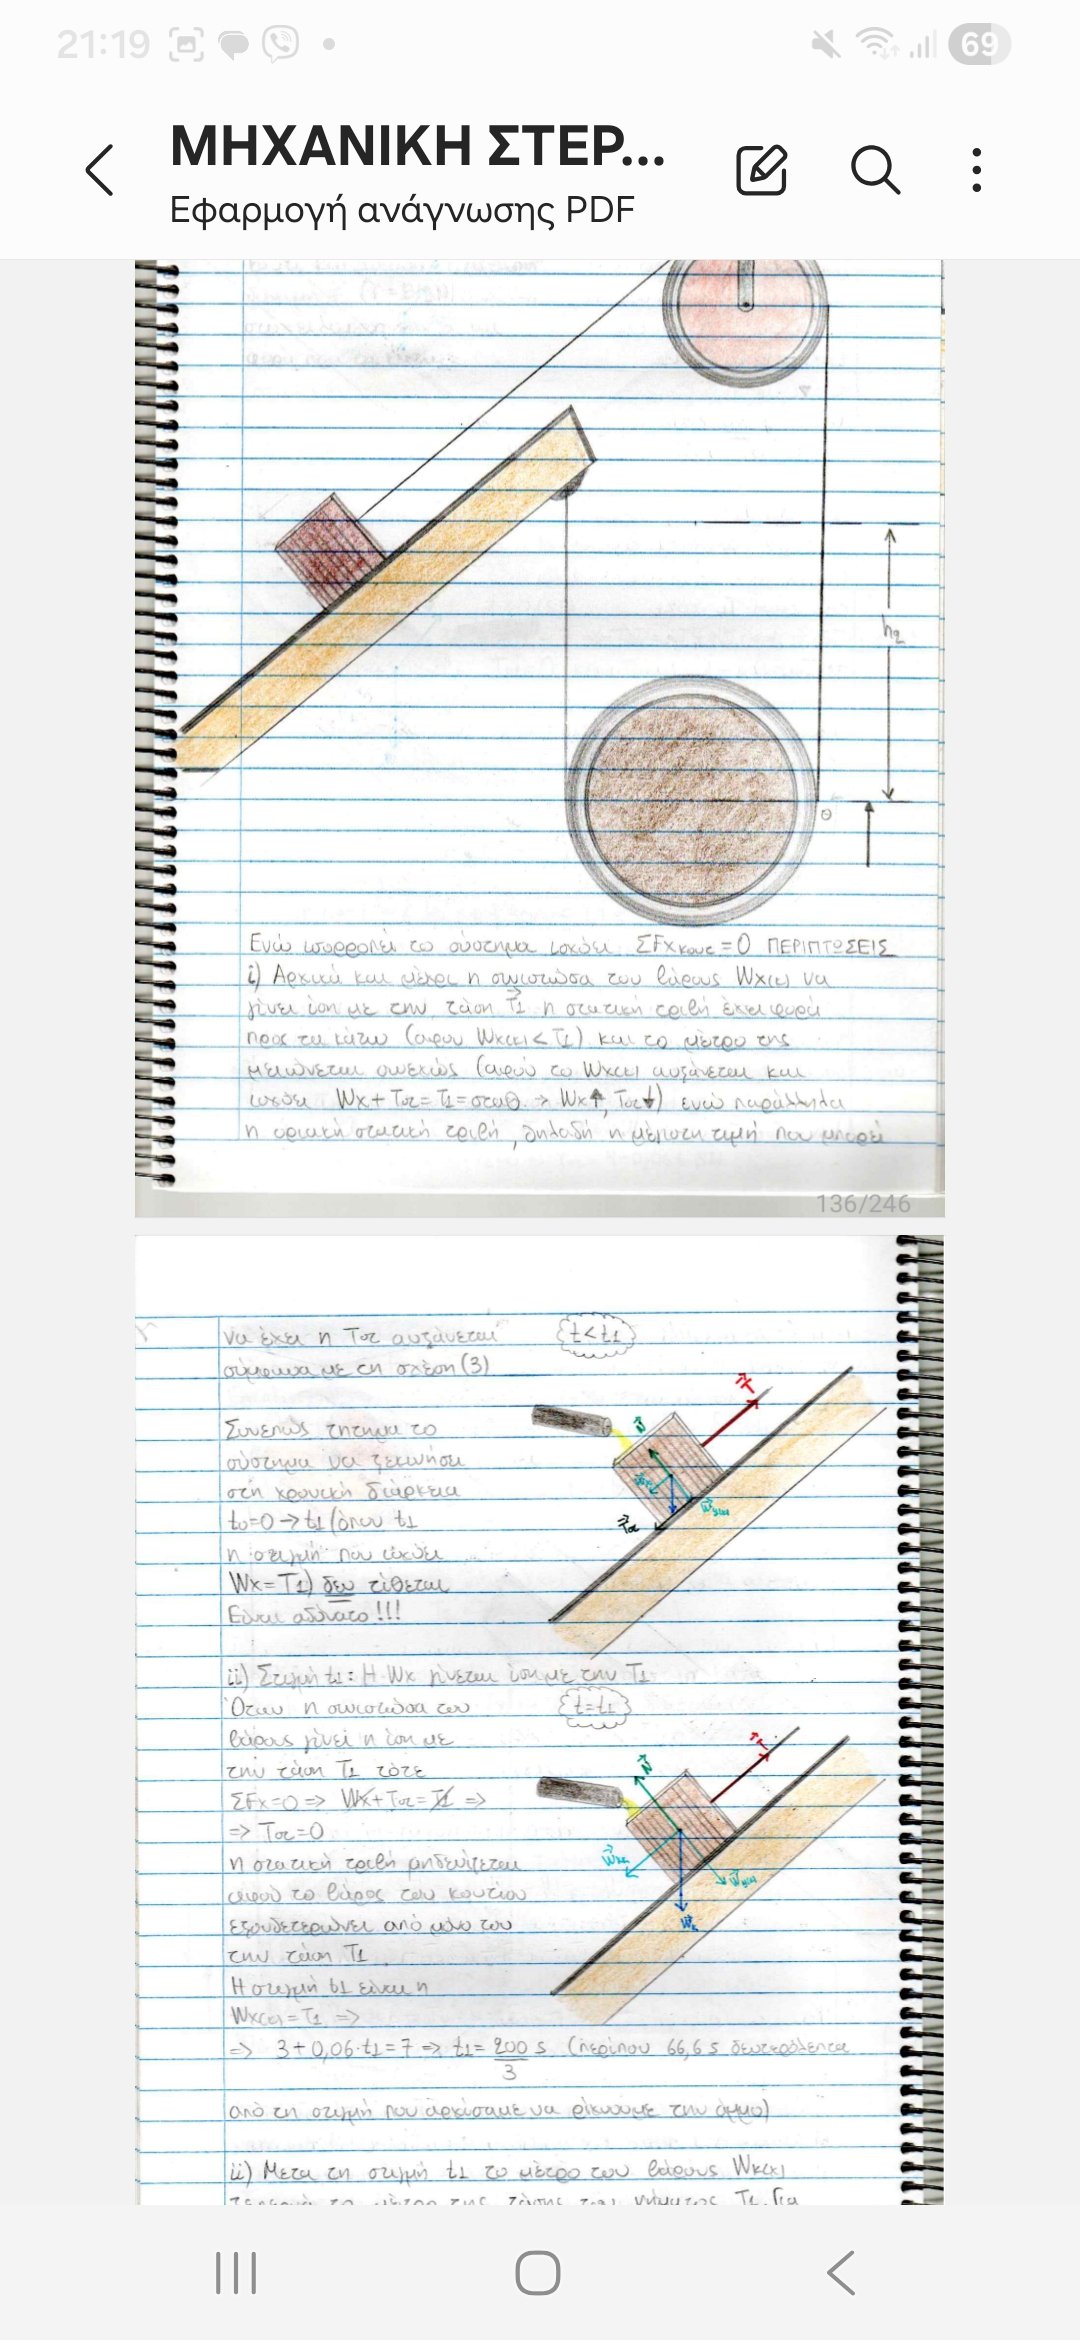 21:19
69
ΜΗΧΑΝΙΚΗ ΣΤΕΡ...
Εφαρμογή ανάγνωσης PDF
h2
θ
Ενώ ισορροπεί το σύστημα ισχύει ΣFxκουτ=0 ΠΕΡΙΠΤΩΣΕΙΣ
i) Αρχικά και μέχρι η συνιστώσα του βάρους Wx(κ) να
γίνει ίση με την τάση T1 η στατική τριβή έχει φορά
προς τα κάτω (αφού Wx(κ)<T1) και το μέτρο της
μειώνεται συνεχώς (αφού το Wx(κ) αυξάνεται και
ισχύει Wx+Tστ=T1=σταθ → Wx↑, Tστ↓) ενώ παράλληλα
η οριακή στατική τριβή, δηλαδή η μέγιστη τιμή που μπορεί
136/246
να έχει η Tστ αυξάνεται
t<t1
σύμφωνα με τη σχέση (3)
Συνεπώς ζήτημα το
σύστημα να ξεκινήσει
στη χρονική διάρκεια
t0=0→t1 (όπου t1
η στιγμή που ισχύει
Wx=T1) δεν τίθεται
Είναι αδύνατο!!!
ii) Στιγμή t1: Η Wx γίνεται ίση με την T1
Όταν η συνιστώσα του
t=t1
βάρους γίνει η ίση με
την τάση T1 τότε
ΣFx=0 => Wx+Tστ=T1 =>
=> Tστ=0
η στατική τριβή μηδενίζεται
αφού το βάρος του κουτιού
εξουδετερώνει από μόνο του
την τάση T1
Η στιγμή t1 είναι η
Wx(κ)=T1 =>
=> 3+0,06·t1=7 => t1= 200/3 s (περίπου 66,6 s δευτερόλεπτα
από τη στιγμή που αρχίσαμε να ρίχνουμε την άμμο)
ii) Μετα τη στιγμή t1 το μέτρο του βάρους Wx(κ)